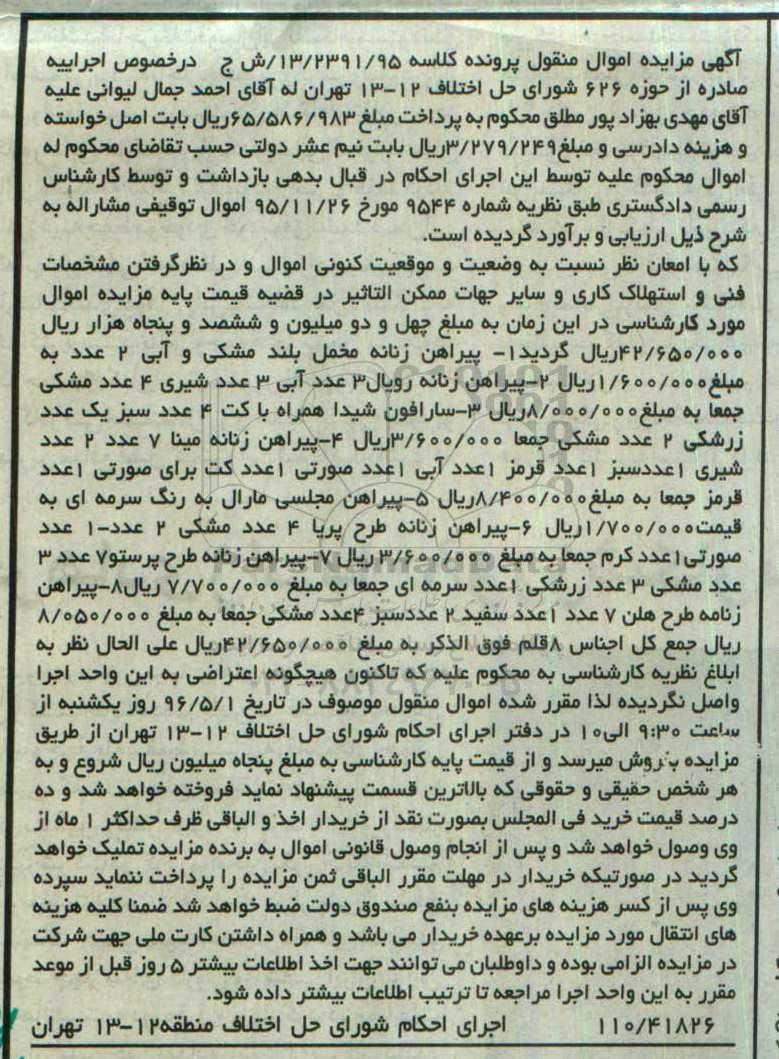 آگهی مزایده اموال منقول پرونده کلاسه ۱۳/۲۳۹۱/۹۵/ش ج درخصوص اجراییه
صادره از حوزه ۶۲۶ شورای حل اختلاف ۱۲-۱۳ تهران له آقای احمد جمال لیوانی علیه
آقای مهدی بهزاد پور مطلق محکوم به پرداخت مبلغ ۶۵/۵۸۶/۹۸۳ریال بابت اصل خواسته
و هزینه دادرسی و مبلغ۳/۲۷۹/۲۴۹ریال بابت نیم عشر دولتی حسب تقاضای محکوم له
اموال محکوم علیه توسط این اجرای احکام در قبال بدهی بازداشت و توسط کارشناس
رسمی دادگستری طبق نظریه شماره ۹۵۴۴ مورخ ۹۵/۱۱/۲۶ اموال توقیفی مشاراله به
شرح ذیل ارزیابی و برآورد گردیده است.
که با امعان نظر نسبت به وضعیت و موقعیت کنونی اموال و در نظرگرفتن مشخصات
فنی و استهلاک کاری و سایر جهات ممکن التاثیر در قضیه قیمت پایه مزایده اموال
مورد کارشناسی در این زمان به مبلغ چهل و دو میلیون و ششصد و پنجاه هزار ریال
۴۲/۶۵۰/۰۰۰ریال گردید۱- پیراهن زنانه مخمل بلند مشکی و آبی ۲ عدد به
مبلغ۱/۶۰۰/۰۰۰ریال ۲-پیراهن زنانه رویال۳ عدد آبی ۳ عدد شیری ۴ عدد مشکی
جمعا به مبلغ۸/۰۰۰/۰۰۰ریال ۳-سارافون شیدا همراه با کت ۴ عدد سبز یک عدد
زرشکی ۲ عدد مشکی جمعا ۳/۶۰۰/۰۰۰ریال ۴-پیراهن زنانه مینا ۷ عدد ۲ عدد
شیری ۱عددسبز ۱عدد قرمز ۱عدد آبی ۱عدد صورتی ۱عدد کت برای صورتی ۱عدد
قرمز جمعا به مبلغ۸/۴۰۰/۰۰۰ریال ۵-پیراهن مجلسی مارال به رنگ سرمه ای به
قیمت۱/۷۰۰/۰۰۰ریال ۶-پیراهن زنانه طرح پریا ۴ عدد مشکی ۲ عدد-۱ عدد
صورتی۱عدد کرم جمعا به مبلغ ۳/۶۰۰/۰۰۰ ریال ۷-پیراهن زنانه طرح پرستو۷ عدد ۳
عدد مشکی ۳ عدد زرشکی ۱عدد سرمه ای جمعا به مبلغ ۷/۷۰۰/۰۰۰ ریال۸-پیراهن
زنامه طرح هلن ۷ عدد ۱عدد سفید ۲ عددسبز ۴عدد مشکی جمعا به مبلغ ۸/۰۵۰/۰۰۰
ریال جمع کل اجناس ۸قلم فوق الذکر به مبلغ ۴۲/۶۵۰/۰۰۰ریال علی الحال نظر به
ابلاغ نظریه کارشناسی به محکوم علیه که تاکنون هیچگونه اعتراضی به این واحد اجرا
واصل نگردیده لذا مقرر شده اموال منقول موصوف در تاریخ ۹۶/۵/۱ روز یکشنبه از
ساعت ۹:۳۰ الی۱۰ در دفتر اجرای احکام شورای حل اختلاف ۱۲-۱۳ تهران از طریق
مزایده بفروش میرسد و از قیمت پایه کارشناسی به مبلغ پنجاه میلیون ریال شروع و به
هر شخص حقیقی و حقوقی که بالاترین قسمت پیشنهاد نماید فروخته خواهد شد و ده
درصد قیمت خرید فی المجلس بصورت نقد از خریدار اخذ و الباقی ظرف حداکثر ۱ ماه از
وی وصول خواهد شد و پس از انجام وصول قانونی اموال به برنده مزایده تملیک خواهد
گردید در صورتیکه خریدار در مهلت مقرر الباقی ثمن مزایده را پرداخت ننماید سپرده
وی پس از کسر هزینه های مزایده بنفع صندوق دولت ضبط خواهد شد ضمنا کلیه هزینه
های انتقال مورد مزایده برعهده خریدار می باشد و همراه داشتن کارت ملی جهت شرکت
در مزایده الزامی بوده و داوطلبان می توانند جهت اخذ اطلاعات بیشتر ۵ روز قبل از موعد
مقرر به این واحد اجرا مراجعه تا ترتیب اطلاعات بیشتر داده شود.
۱۱۰/۴۱۸۲۶ اجرای احکام شورای حل اختلاف منطقه۱۲-۱۳ تهران